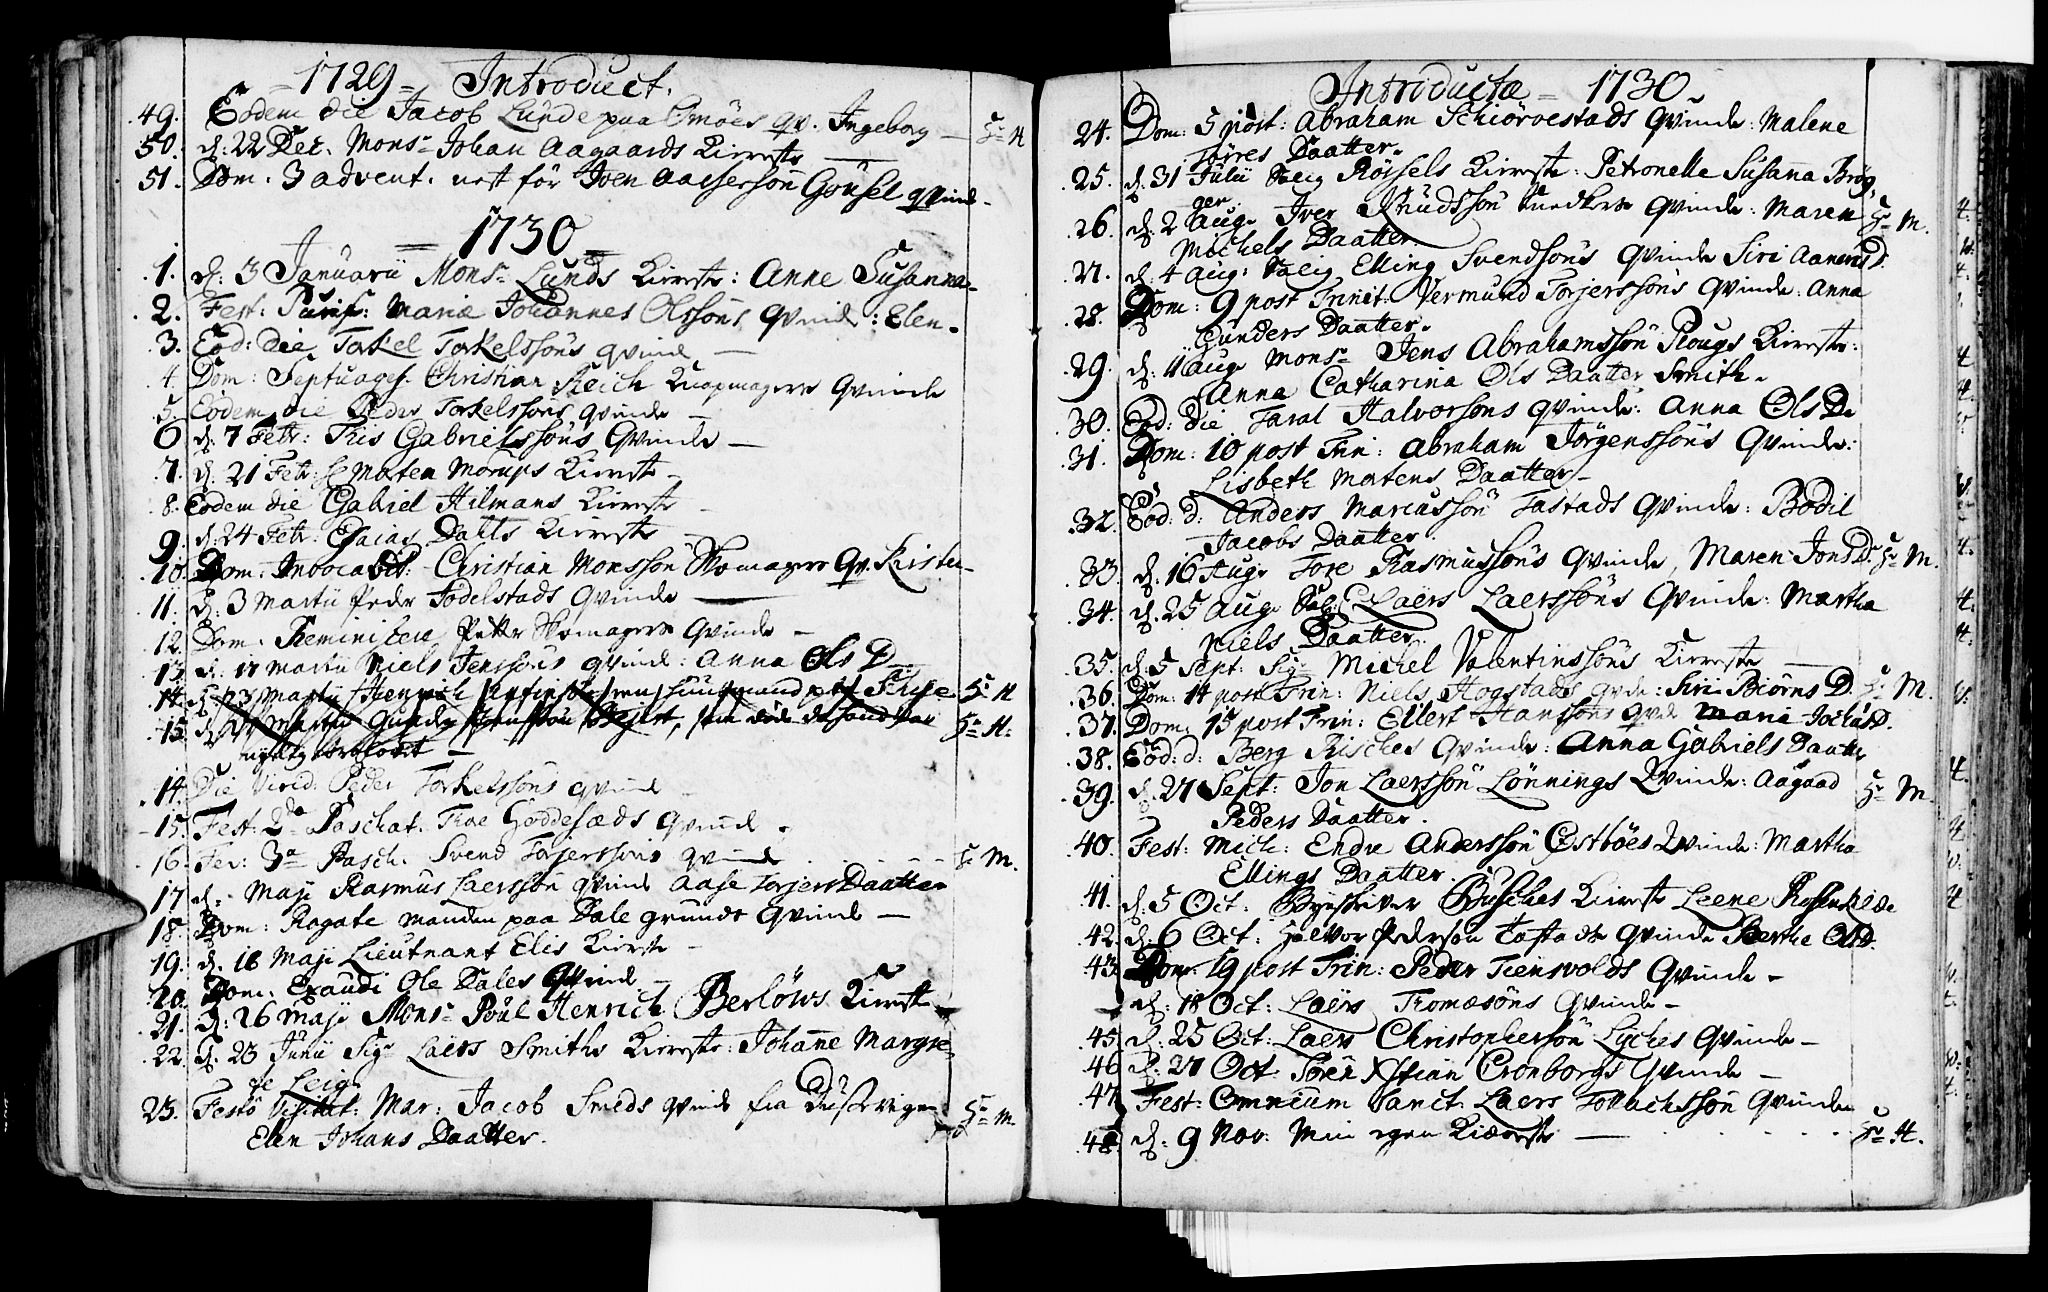 1729 Introduct.
49. Eodem die Jacob Lunde paa Omöes qv. Ingeborg — Hr H
50. d: 22 Dec. Monsr Johan Aagaards Kiereste —
51. Dom. 3 advent. nest för Iven Aachessön Gousel qvinde
1730
1. d: 3 Januarii Monsr Lunds Kiereste: Anne Susanna
2. Fest: Purif: Mariæ Johannes Olssöns Qvinde: Elen
3. Eod: die Torkel Torkelssöns qvinde —
4. Dom: Septuages. Christian Reich Knapmagers Qvinde
5. Eodem die Peder Torkelssöns qvinde —
6 d. 7 Febr: Tris Gabrielssöns Qvinde —
7. d. 21 Febr: Hr Morten Morups Kiereste
8. Eodem die Gabriel Hilmans Kiereste
9. d. 24 Febr: Esaias Dahls Kiereste
10. Dom. Invocabit: Christian Monssön Skomagers Qv. Kirsten
11. d: 3 Martii Peder Todelstads Qvinde —
12. Dom. Reminiscere Petter Skomagers Qvinde —
13. d. 17 Martii Niels Jenssöns qvinde: Anna Ols D.
14. d. 23 Martii Henrich Hr H
15. d Martii Gunder Hr H:
nyelig
14. Die Virid: Peder Torkelssöns qvinde
15. Fest. 2da Paschat. Tore Goddesæds Qvinde.
16. Fer: 3a Pasch. Svend Torjerssöns qvinde Hr M.
17 d. Maji Rasmus Laerssön qvinde Aase Torjers Daatter
18. Dom: Rogate manden paa Dale grunds Qvinde —
19. d. 16 Maji Lieutnant Elis Kiereste
20 Dom: Exaudi Ole Dales Qvinde
21. d: 26 Maji Monsr Poul Henrich Berlöws Kiereste
22. d. 23 Junii Sigr Laers Smiths Kiereste: Johanne Margre
te Leig.
23. Festo Visitat: Mar: Jacob Smeds qvinde fra Dusevigen Hr M.
Elen Johans Daatter.
Introductæ 1730
24. Dom: 5 post: Abraham Schiörvestads Qvinde: Malene
Törres Daatter.
25. d. 31 Julii Sal: Röysels Kiereste: Petronelle Susanna Brög
ger
26. d. 2 Aug. Iver Knudssön Snedkers Qvinde: Maren Hr M.
Michels Daatter.
27. d. 4 Aug: Elling Svendsöns Qvinde Siri Aanens D.
28. Dom: 9 post Trinit. Vermund Torjerssöns Qvinde: Anna
Gunders Daatter.
29. d. 11 Aug. Monsr Jens Abrahamssön Plougs Kiereste:
Anna Catharina Ols Daatter Smith.
30. Eod: die Taral Halvorsöns qvinde: Anna Ols D.
31. Dom: 10 post Trin: Abraham Jörgenssöns Qvinde:
Lisbeth Mortens Daatter
32. Eod: d: Anders Mariussön Tastads Qvinde: Bodil
Jacobs Daatter.
33. d. 16 Aug. Tore Rasmussöns Qvinde, Maren Jons D. Hr M.
34. d. 25 Aug. Laers Laerssöns Qvinde: Martha
Niels Daatter.
35. d. 5 Sept: Sigr Michel Valentinssöns Kiereste —
36. Dom: 14 post Trin: Niels Hogstads qvde: Siri Biörns D. Hr M.
37. Dom: 15 post Trin: Ellert Hanssöns qvd. Maria Jochûs D.
38. Eod: d: Berg Risches Qvinde: Anna Gabriels Daatter
39. d. 27 Sept: Jon Laerssön Lönnings Qvinde: Aagaad Hr M.
Peders Daatter.
40. Fest: Mich: Endre Anderssön Östböes Qvinde: Martha
Ellings Daatter.
41. d. 5 Oct: Byeskriver Busches Kiereste Leene Rosenkilde
42. d. 6 Oct: Halvor Pedersön Tasta des Qvinde Berthe Ols D.
43. Dom. 19 post Trin: Peder Tiensvolds Qvinde —
d: 18 Oct: Laers Tromæsöns Qvinde —
45. d. 25 Oct: Laers Christophersön Lyches Qvinde —
46 d: 27 Oct. Sören Xstian Cronborgs Qvinde —
47 Fest: Omnium Sanct. Laers Tollachssön Qvinde
48. d: 9 Nov: Min egen Kiæreste — Hr H.